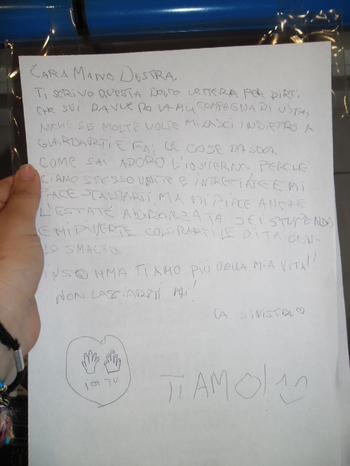 CARA MANO DESTRA,
TI SCRIVO QUESTA DOLCE LETTERA PER DIRTI
CHE SEI DAVVERO LA MIA COMPAGNA DI VITA,
ANCHE SE MOLTE VOLTE MI LASCI INDIETRO A
GUARDARTI E FAI LE COSE DA SOLA.
COME SAI ADORO L'INVERNO PERCHÈ
SIAMO SPESSO UNITE E INTRECCIATE E MI
PIACE MA MI PIACE ANCHE
L'ESTATE ABBRONZATA SEI STUPENDA
E MI DIVERTE COLORARTI LE DITA CON
LO SMALTO.
INSOMMA TI AMO PIÙ DELLA MIA VITA!
NON LASCIARMI MAI!
LA SINISTRA
IO TU
TI AMO!